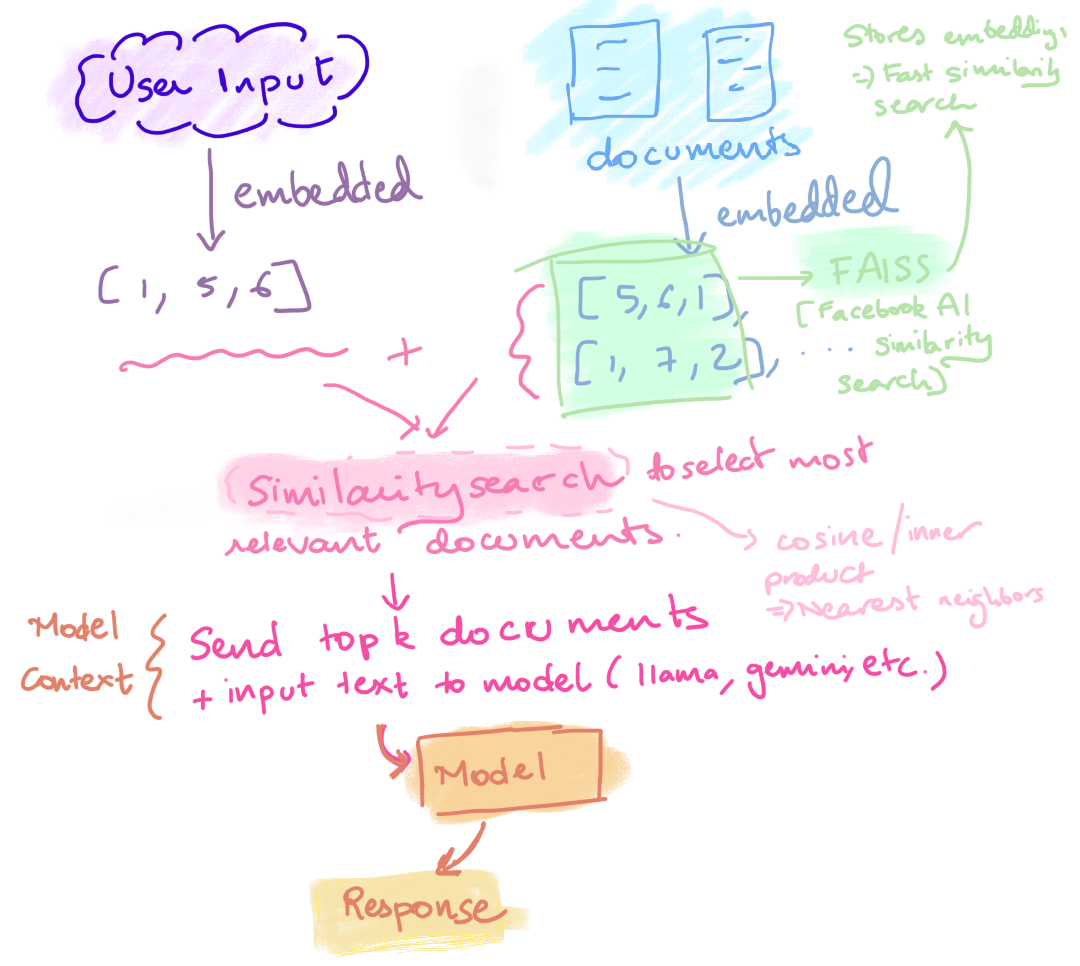 User Input
embedded
[1, 5, 6]
documents
embedded
[5, 6, 1],
[1, 7, 2], . . . .
Stores embeddings
=> Fast similarity
search
FAISS
[Facebook AI
Similarity
search]
+
Similarity search to select most
relevant documents.
cosine / inner
product
=> Nearest neighbors
Model
Context
Send top k documents
+ input text to model (llama, gemini, etc.)
Model
Response